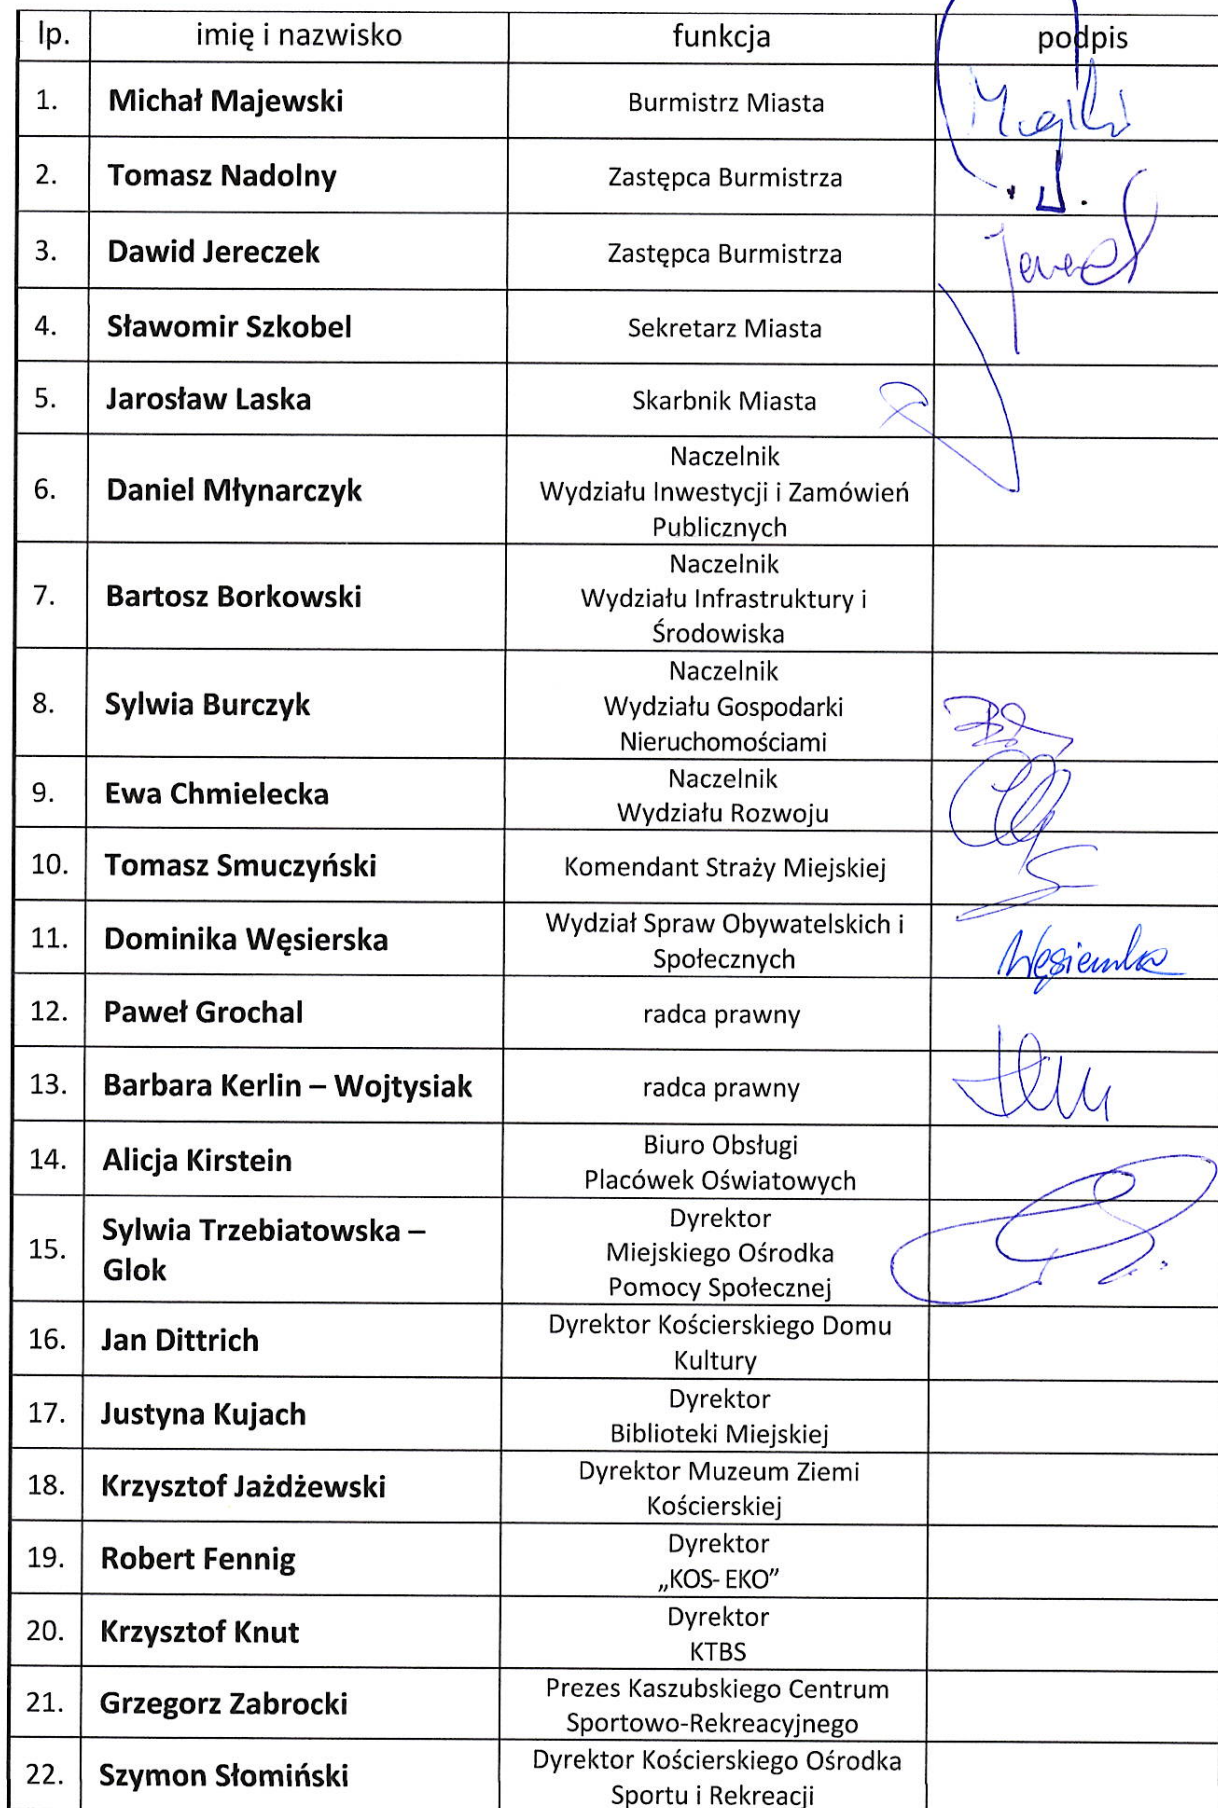 lp. imię i nazwisko funkcja podpis
1. Michał Majewski Burmistrz Miasta
2. Tomasz Nadolny Zastępca Burmistrza
3. Dawid Jereczek Zastępca Burmistrza
4. Sławomir Szkobel Sekretarz Miasta
5. Jarosław Laska Skarbnik Miasta
6. Daniel Młynarczyk Naczelnik
Wydziału Inwestycji i Zamówień
Publicznych
7. Bartosz Borkowski Naczelnik
Wydziału Infrastruktury i
Środowiska
8. Sylwia Burczyk Naczelnik
Wydziału Gospodarki
Nieruchomościami
9. Ewa Chmielecka Naczelnik
Wydziału Rozwoju
10. Tomasz Smuczyński Komendant Straży Miejskiej
11. Dominika Węsierska Wydział Spraw Obywatelskich i
Społecznych Węsierska
12. Paweł Grochal radca prawny
13. Barbara Kerlin – Wojtysiak radca prawny
14. Alicja Kirstein Biuro Obsługi
Placówek Oświatowych
15. Sylwia Trzebiatowska –
Glok
Dyrektor
Miejskiego Ośrodka
Pomocy Społecznej
16. Jan Dittrich Dyrektor Kościerskiego Domu
Kultury
17. Justyna Kujach Dyrektor
Biblioteki Miejskiej
18. Krzysztof Jażdżewski Dyrektor Muzeum Ziemi
Kościerskiej
19. Robert Fennig Dyrektor
„KOS- EKO”
20. Krzysztof Knut Dyrektor
KTBS
21. Grzegorz Zabrocki Prezes Kaszubskiego Centrum
Sportowo-Rekreacyjnego
22. Szymon Słomiński Dyrektor Kościerskiego Ośrodka
Sportu i Rekreacji